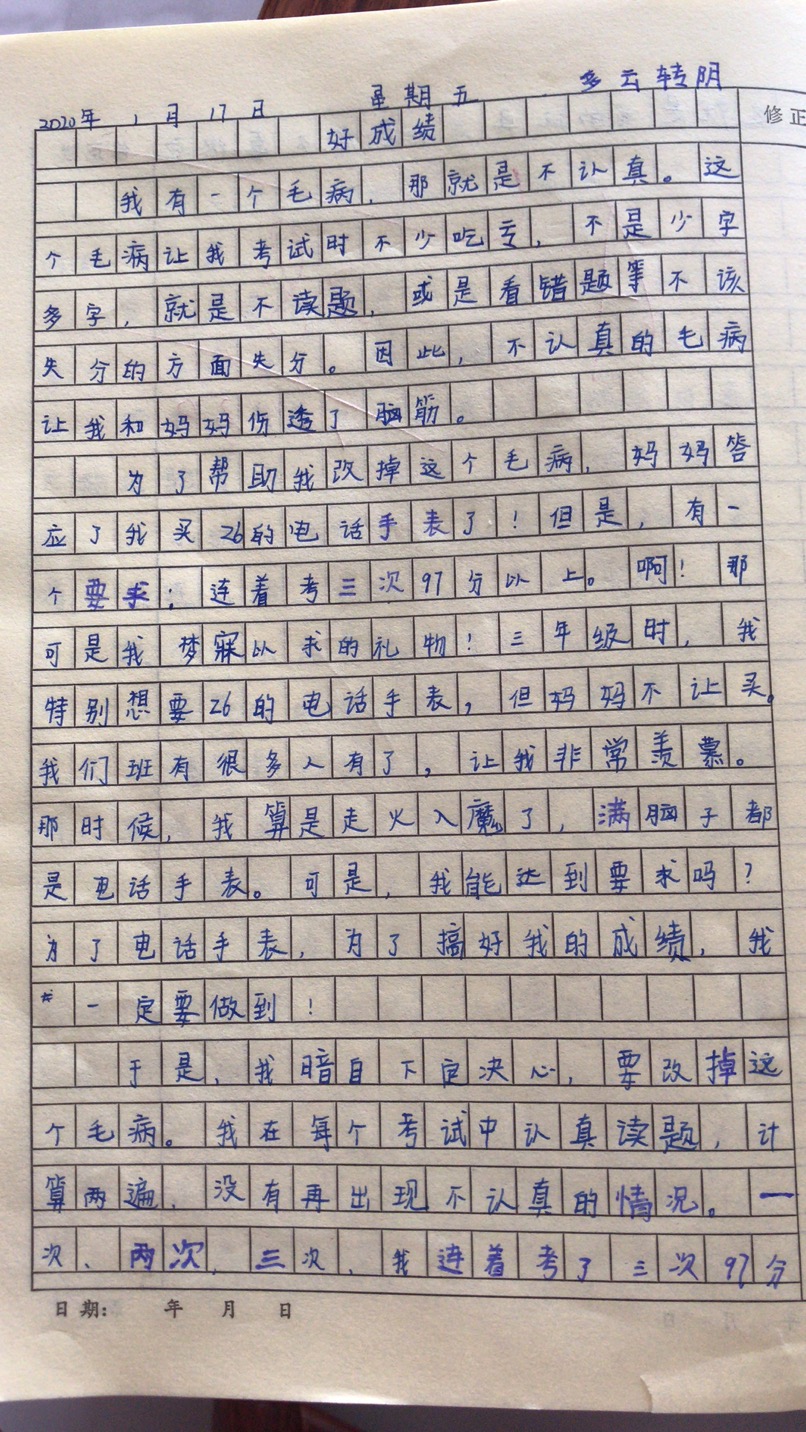 2020年 1月 17日 星期五 多云转阴
修正
好成绩
我有一个毛病，那就是不认真。这
个毛病让我考试时不少吃亏，不是少字
多字，就是不读题，或是看错题等不该
失分的方面失分。因此，不认真的毛病
让我和妈妈伤透了脑筋。
为了帮助我改掉这个毛病，妈妈答
应了我买Z6的电话手表了！但是，有一
个要求：连着考三次97分以上。啊！那
可是我梦寐以求的礼物！三年级时，我
特别想要Z6的电话手表，但妈妈不让买。
我们班有很多人有了，让我非常羡慕。
那时候，我算是走火入魔了，满脑子都
是电话手表。可是，我能达到要求吗？
为了电话手表，为了搞好我的成绩，我
一定要做到！
于是，我暗自下定决心，要改掉这
个毛病。我在每个考试中认真读题，计
算两遍，没有再出现不认真的情况。一
次、两次、三次，我连着考了三次97分
日期： 年 月 日